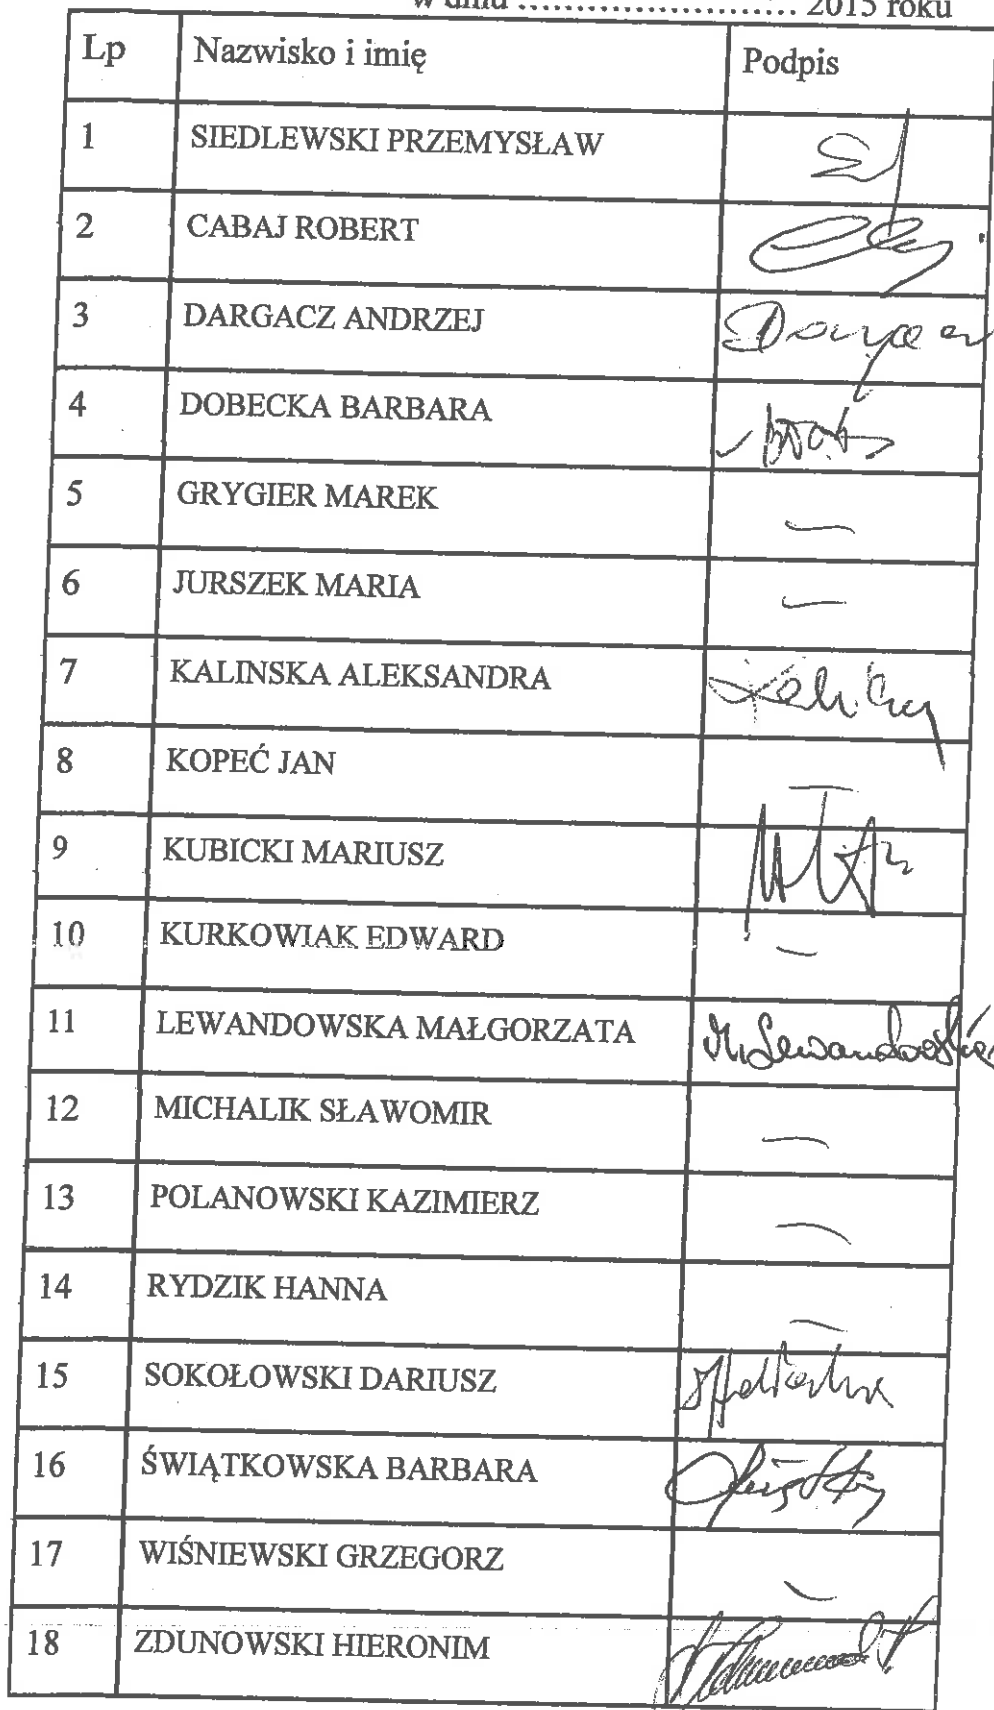 w dniu ........................ 2015 roku
Lp Nazwisko i imię Podpis
1 SIEDLEWSKI PRZEMYSŁAW
2 CABAJ ROBERT
3 DARGACZ ANDRZEJ
4 DOBECKA BARBARA
5 GRYGIER MAREK —
6 JURSZEK MARIA —
7 KALINSKA ALEKSANDRA
8 KOPEĆ JAN —
9 KUBICKI MARIUSZ
10 KURKOWIAK EDWARD —
11 LEWANDOWSKA MAŁGORZATA M. Lewandowska
12 MICHALIK SŁAWOMIR —
13 POLANOWSKI KAZIMIERZ —
14 RYDZIK HANNA —
15 SOKOŁOWSKI DARIUSZ
16 ŚWIĄTKOWSKA BARBARA
17 WIŚNIEWSKI GRZEGORZ —
18 ZDUNOWSKI HIERONIM